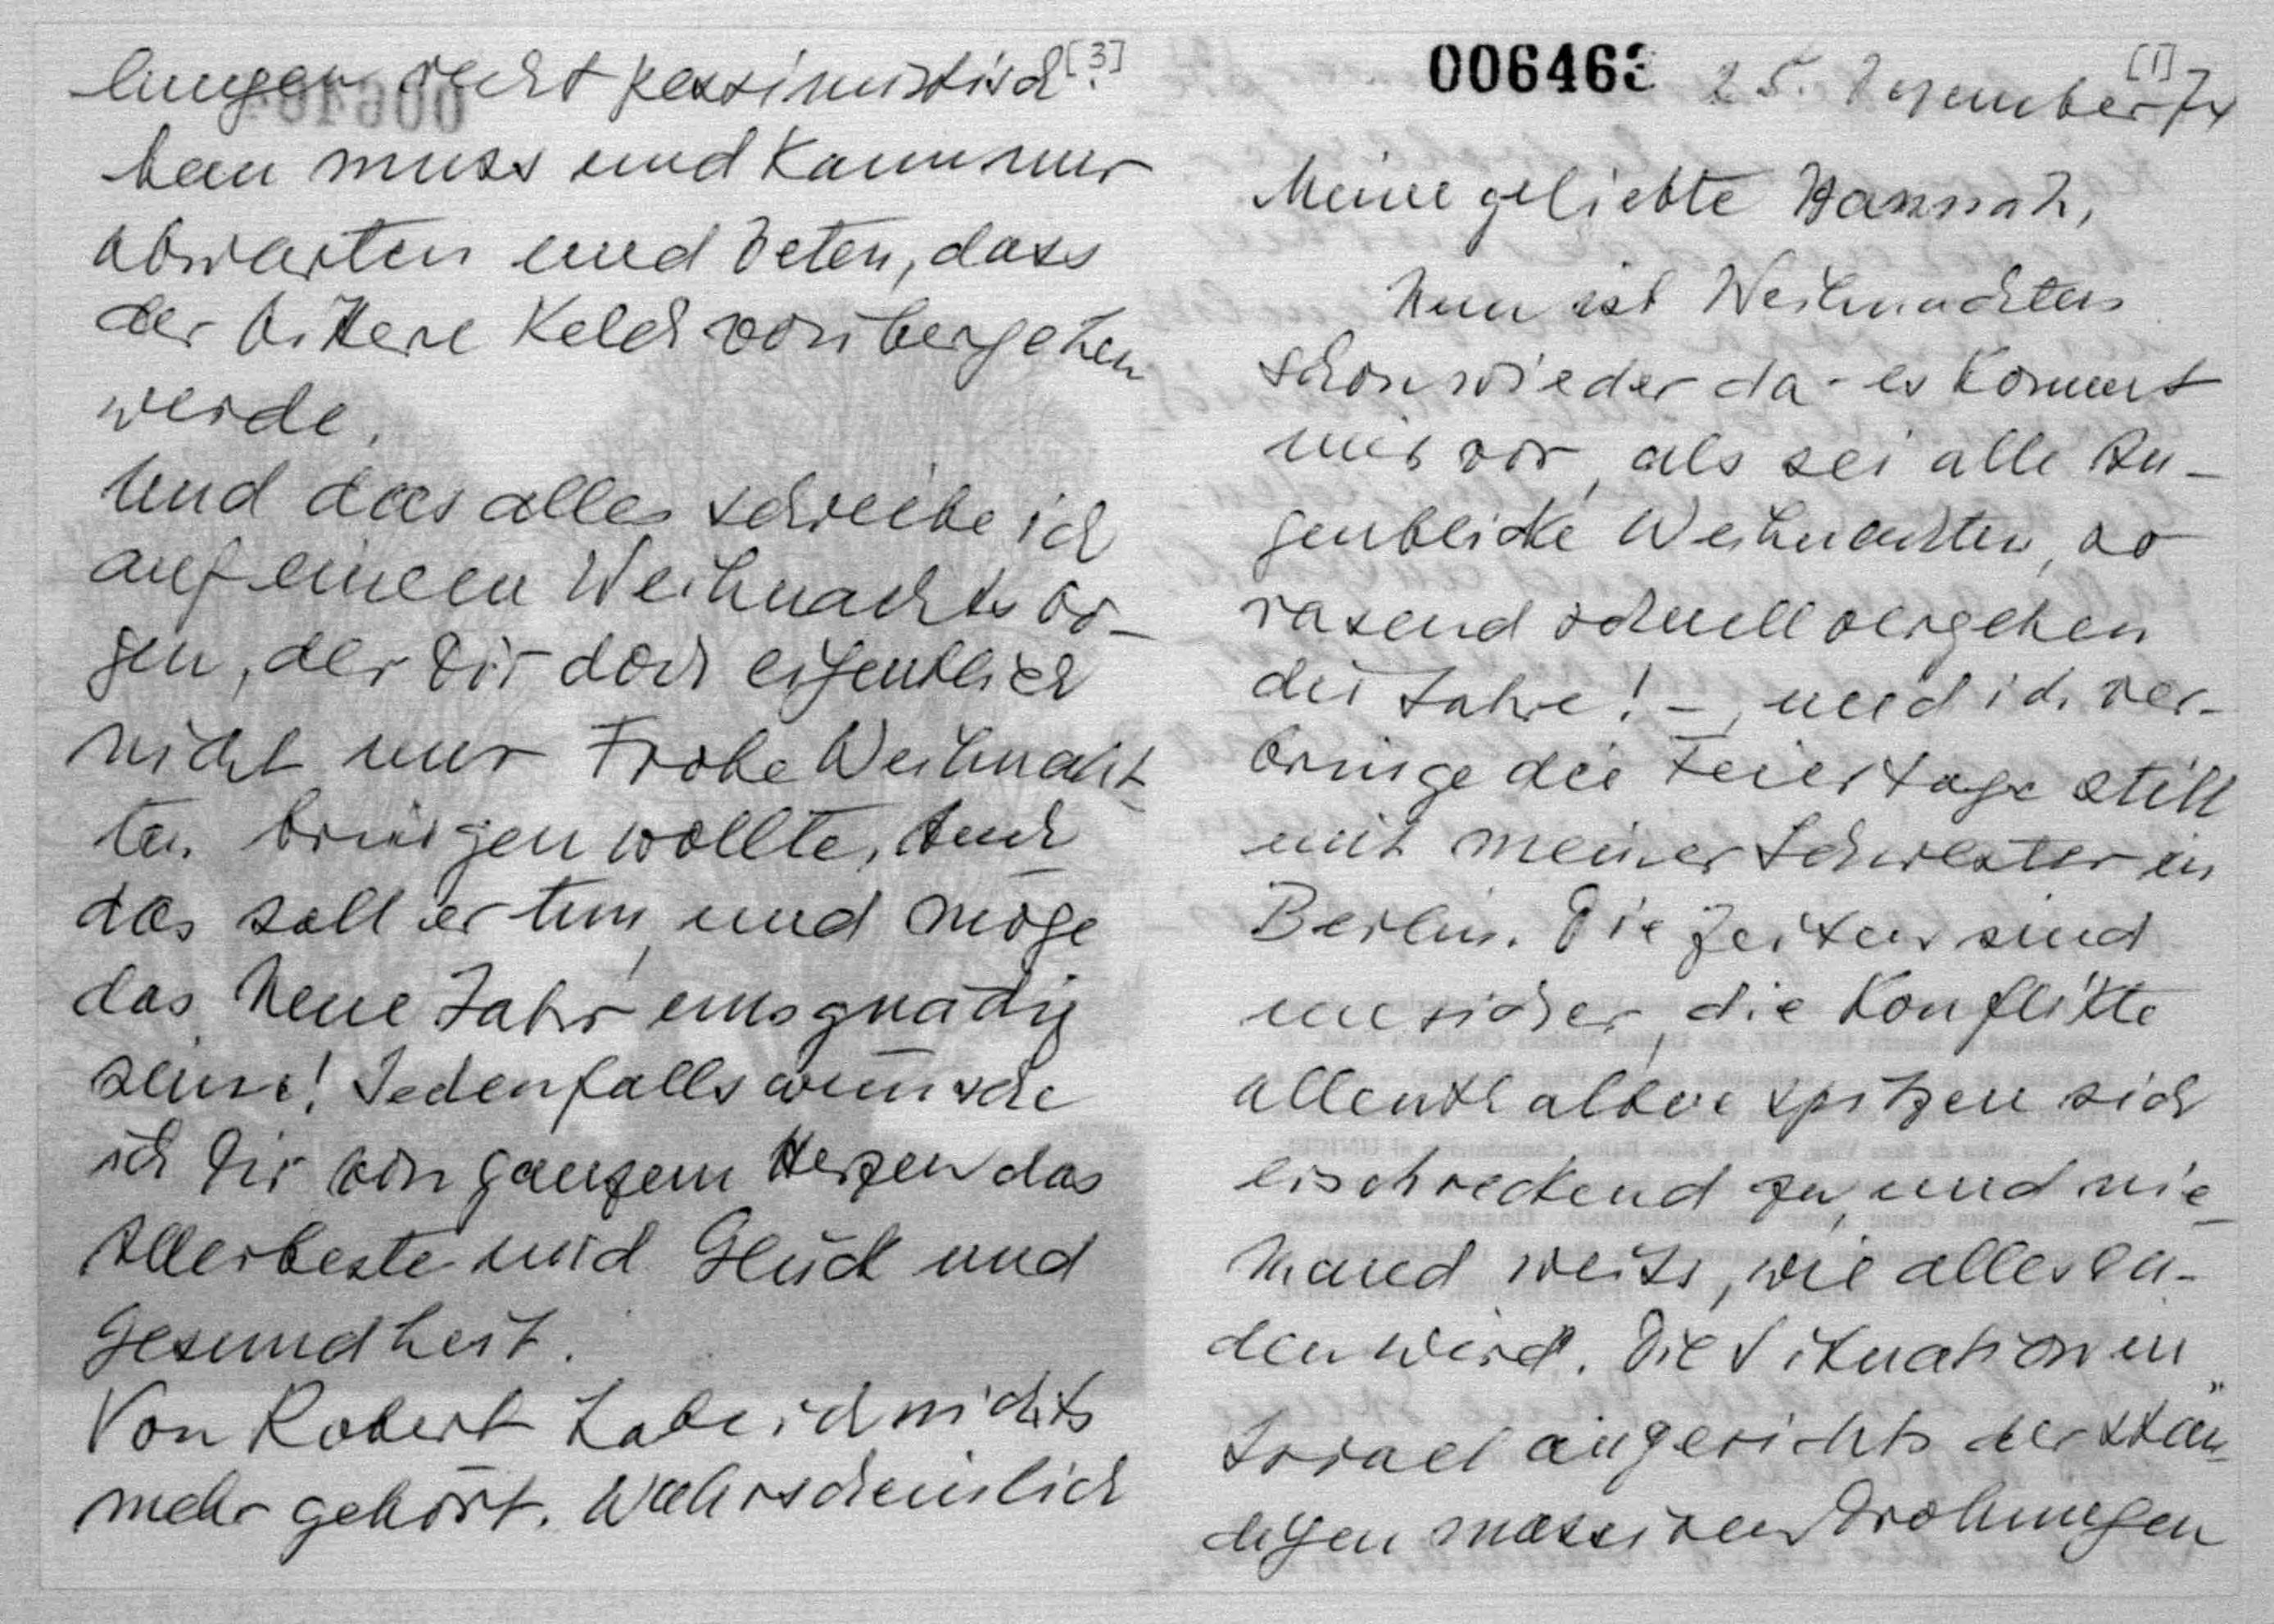 lungen recht pessimistisch.[3]
Man muss und kann nur
abwarten und beten, dass
der bittere Kelch vorübergehen
werde.
Und das alles schreibe ich
auf einem Weihnachtsbo-
gen, der Dir doch eigentlich
nicht nur Frohe Weihnach-
ten bringen wollte. Auch
das soll er tun, und möge
das Neue Jahr uns gnädig
sein! Jedenfalls wünsche
ich Dir von ganzem Herzen das
Allerbeste und Glück und
Gesundheit.
Von Robert habe ich nichts
mehr gehört. Wahrscheinlich
006463 25. Dezember 74 [1]
Meine geliebte Hannah,
Nun ist Weihnachten
schon wieder da - es kommt
mir vor, als sei alle Au-
genblicke Weihnachten, so
rasend schnell vergehen
die Jahre! -, und ich ver-
bringe die Feiertage still
mit meiner Schwester in
Berlin. Die Zeiten sind
unsicher, die Konflikte
allenthalben spitzen sich
erschreckend zu, und nie-
mand weiss, wie alles en-
den wird. Die Situation in
Israel angesichts der stän-
digen massiven Drohungen